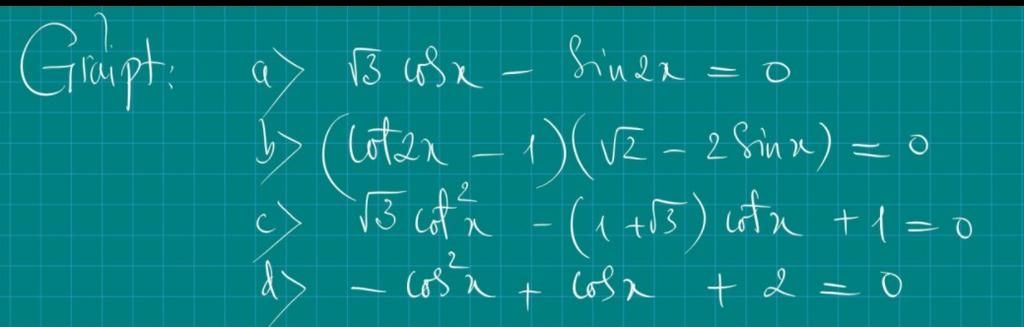 Giải pt: a> √3 cosx - Sin2x = 0
b> (cot2x - 1)(√2 - 2 Sinx) = 0
c> √3 cot²x - (1+√3) cotx + 1 = 0
d> - cos²x + cosx + 2 = 0